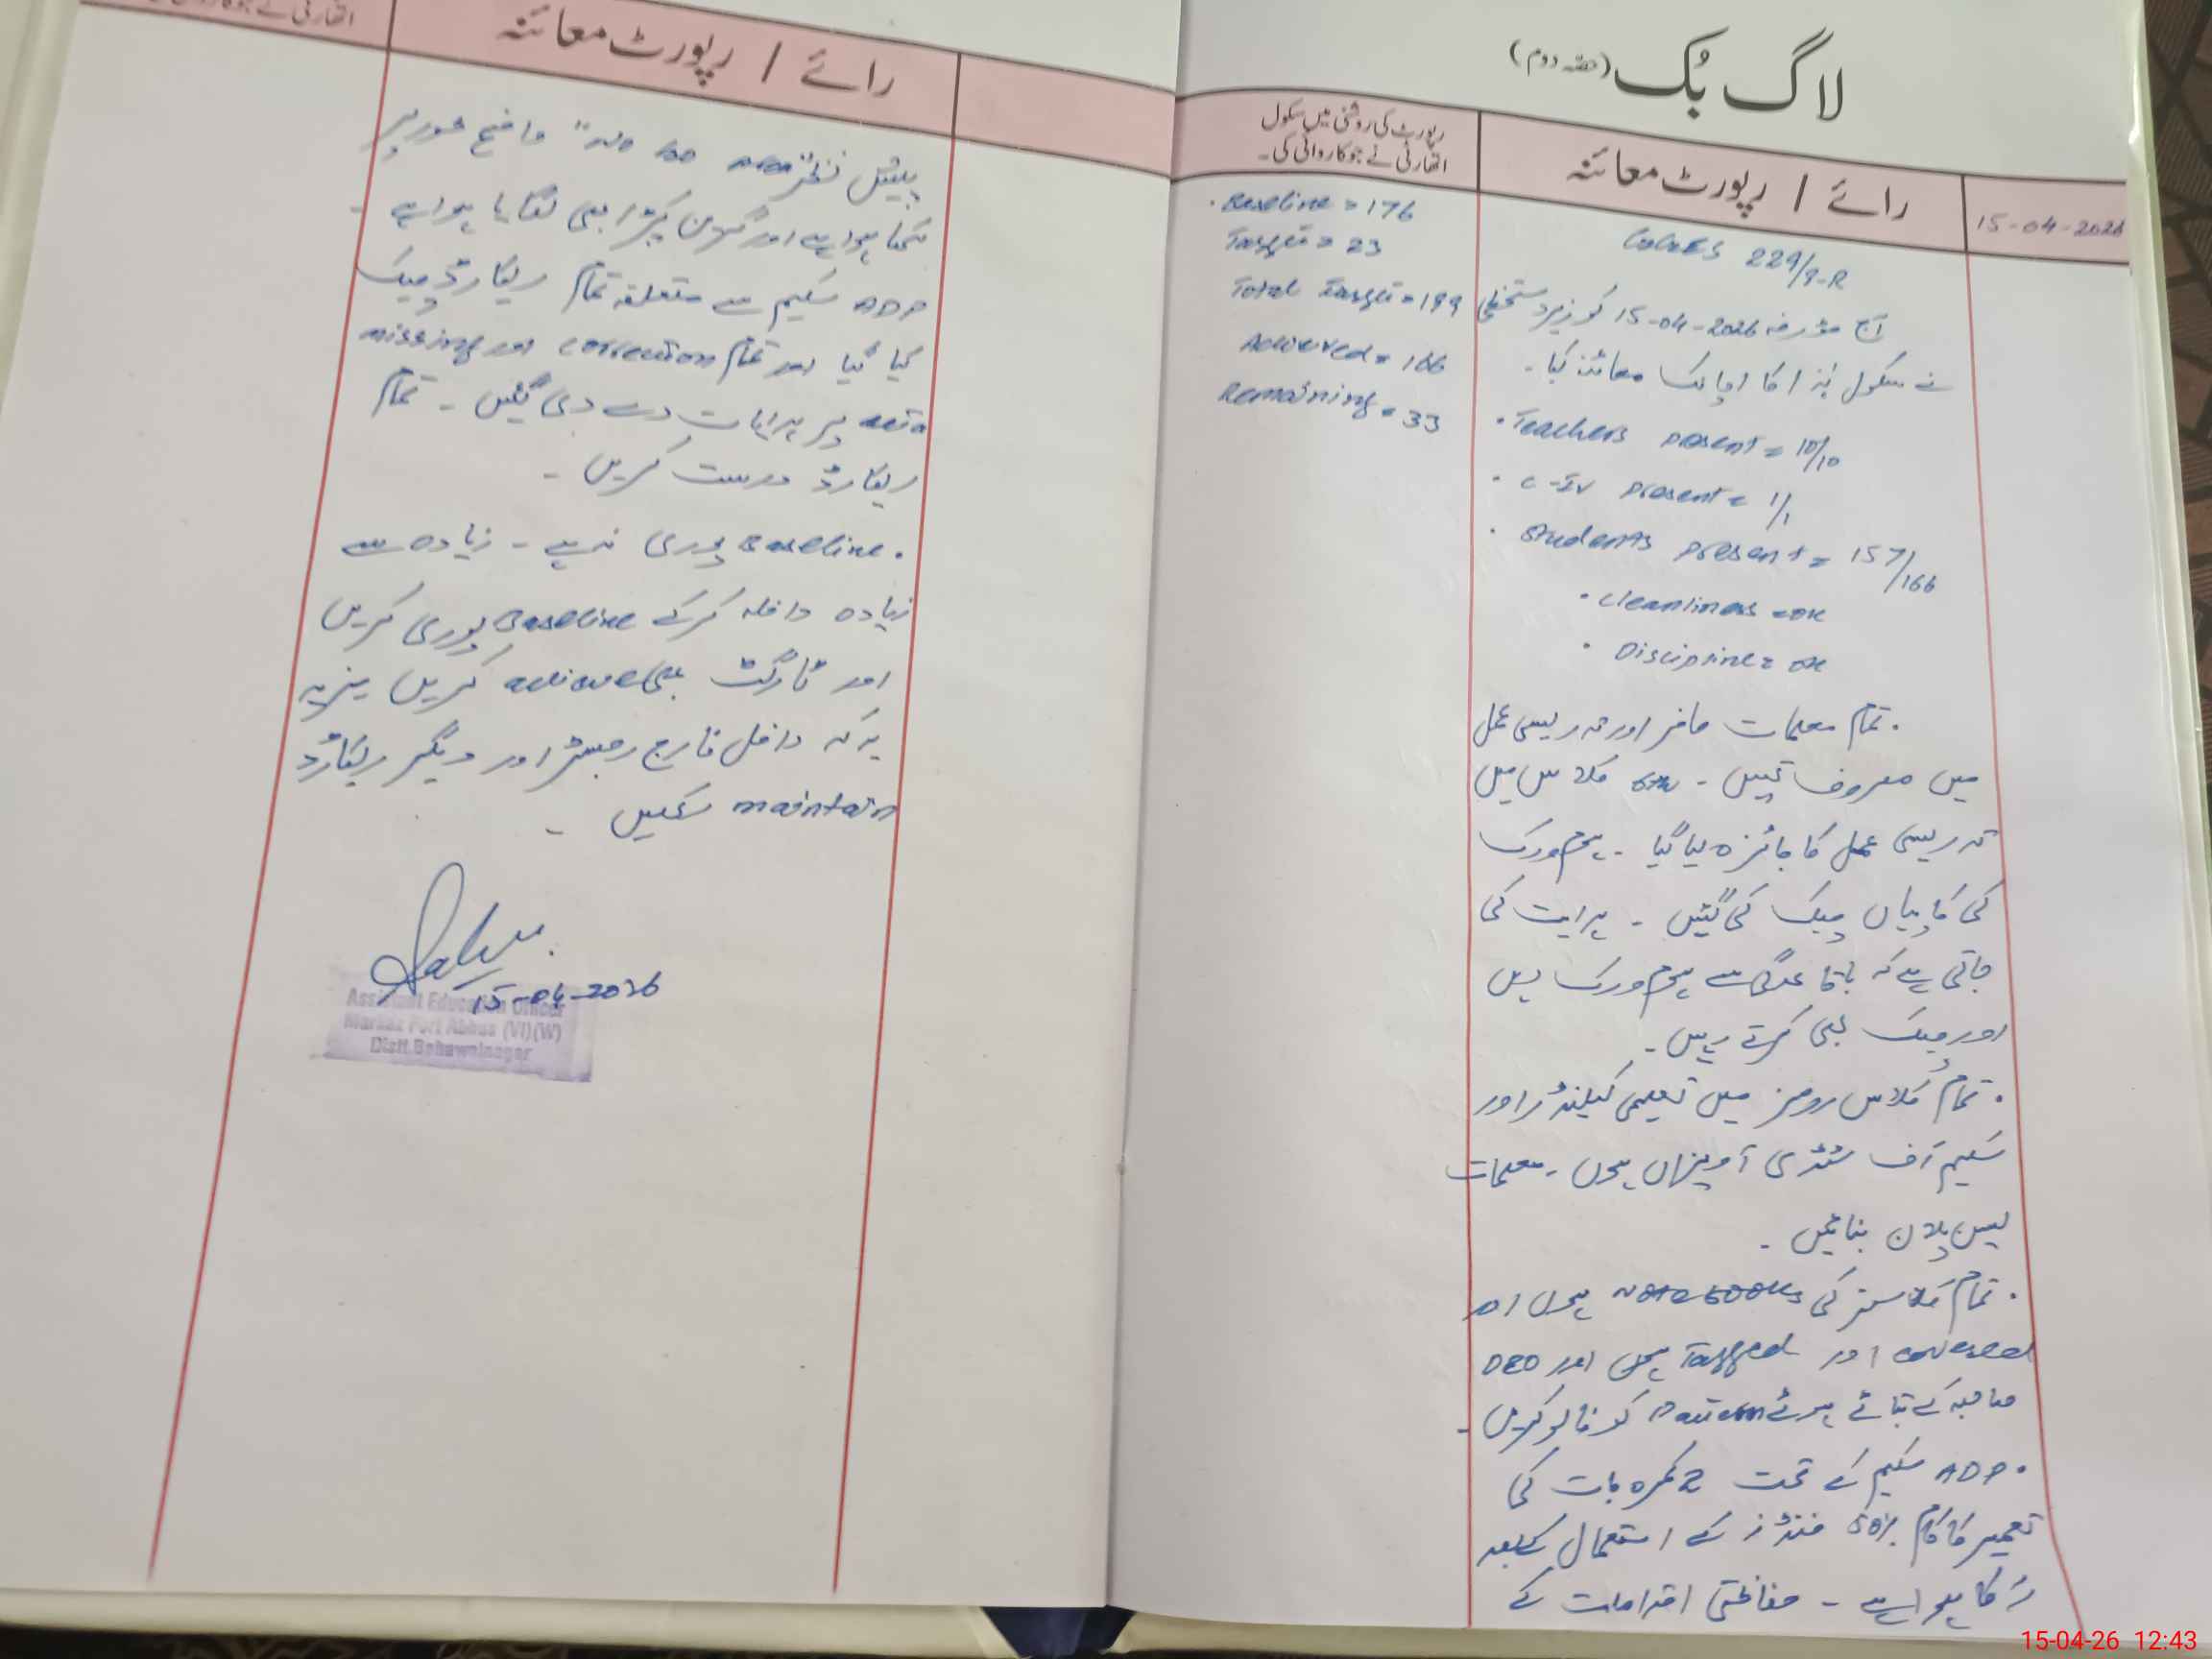 لاگ بُک (حصّہ دوم)
رپورٹ کی روشنی میں سکول
اتھارٹی نے جو کاروائی کی۔
رائے / رپورٹ معائنہ
15-04-2026
229/9-R
آج مورخہ 15-04-2026 کو زیر دستخطی
نے سکول ہٰذا کا اچانک معائنہ کیا۔
• Teachers present = 10/10
• C-IV present = 1/1
• Students present = 157/166
• Cleanliness = ok
• Discipline = ok
• تمام معلمات حاضر اور تدریسی عمل
میں مصروف تھیں۔ 5th کلاس میں
تدریسی عمل کا جائزہ لیا گیا۔ ہوم ورک
کی کاپیاں چیک کی گئیں۔ ہدایت کی
جاتی ہے کہ باقاعدگی سے ہوم ورک دیں
اور چیک بھی کرتے رہیں۔
• تمام کلاس رومز میں تعلیمی کیلنڈر اور
سکیم آف سٹڈی آویزاں ہوں۔ معلمات
لیسن پلان بنائیں۔
• تمام کلاسز کی Notebooks ہوں اور
covered اور Tagged ہوں اور DEO
صاحبہ کے بتائے ہوئے Pattern کو فالو کریں۔
• ADP سکیم کے تحت 2 کمرہ جات کی
تعمیر کا کام 50% فنڈز کے استعمال کے بعد
رُکا ہوا ہے۔ حفاظتی اقدامات کے
• Baseline = 176
Target = 23
Total Target = 199
Achieved = 166
Remaining = 33
اتھارٹی نے جو کاروائی کی۔
رائے / رپورٹ معائنہ
پیش نظر "No Go Area" واضح طور پر
لکھا ہوا ہے اور گرین کپڑا بھی لگایا ہوا ہے۔
ADP سکیم سے متعلقہ تمام ریکارڈ چیک
کیا گیا اور تمام correction اور missing
data پر ہدایات دے دی گئیں۔ تمام
ریکارڈ درست کریں۔
• Baseline پوری نہ ہے۔ زیادہ سے
زیادہ داخلہ کرکے Baseline پوری کریں
اور ٹارگٹ بھی achieve کریں نیز یہ
کہ داخل خارج رجسٹر اور دیگر ریکارڈ
maintain رکھیں۔
15-04-2026
Assistant Education Officer
Markaz Fort Abbas (VI)(W)
Distt. Bahawalnagar
15-04-26 12:43